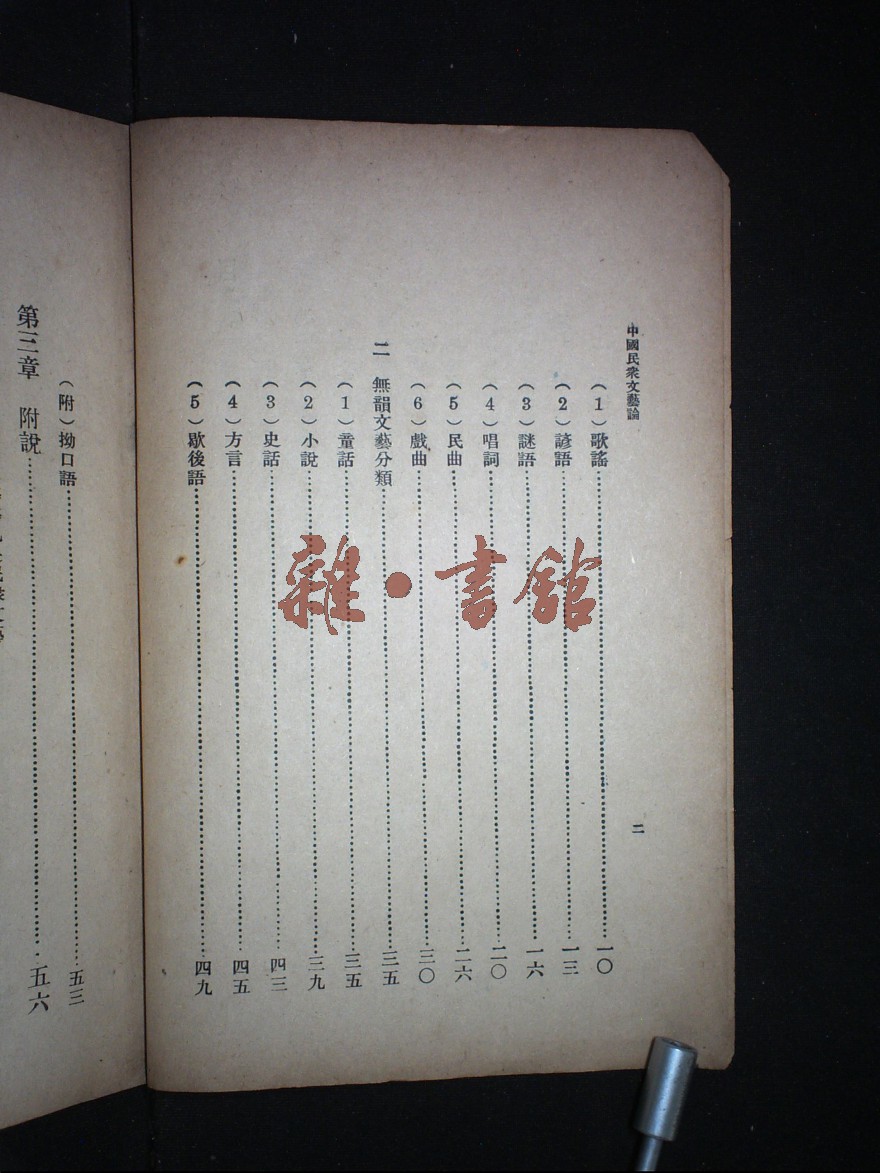 中國民衆文藝論
二
(1)歌謠……一〇
(2)諺語……一三
(3)謎語……一六
(4)唱詞……二〇
(5)民曲……二六
(6)戲曲……三〇
二 無韻文藝分類……三五
(1)童話……三五
(2)小說……三九
(3)史話……四三
(4)方言……四五
(5)歇後語……四九
(附)拗口語……五三
第三章 附說……五六
雜•書館